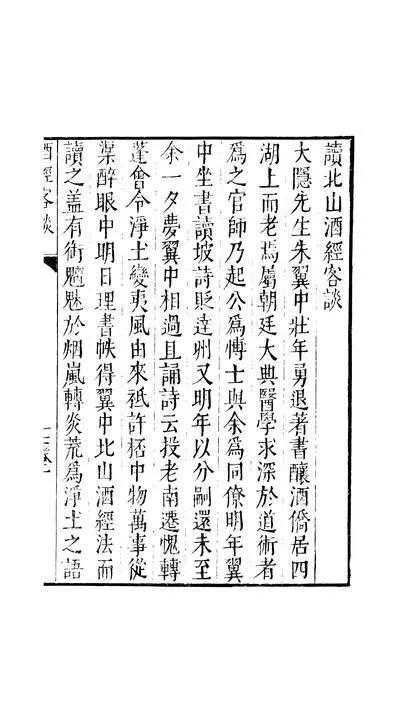 讀北山酒經客談
大隱先生朱翼中壯年勇退著書釀酒僑居四
湖上而老焉屬朝廷大典醫學求深於道術者
爲之官師乃起公爲博士與余爲同僚明年翼
中坐書讀坡詩貶達州又明年以分嗣還未至
余一夕夢翼中相過且誦詩云投老南遷愧轉
蓬會令淨土變夷風由來祗許杯中物萬事從
渠醉眼中明日理書帙得翼中北山酒經法而
讀之盖有術魑魅於烟嵐轉炎荒爲淨土之語
酒經客談